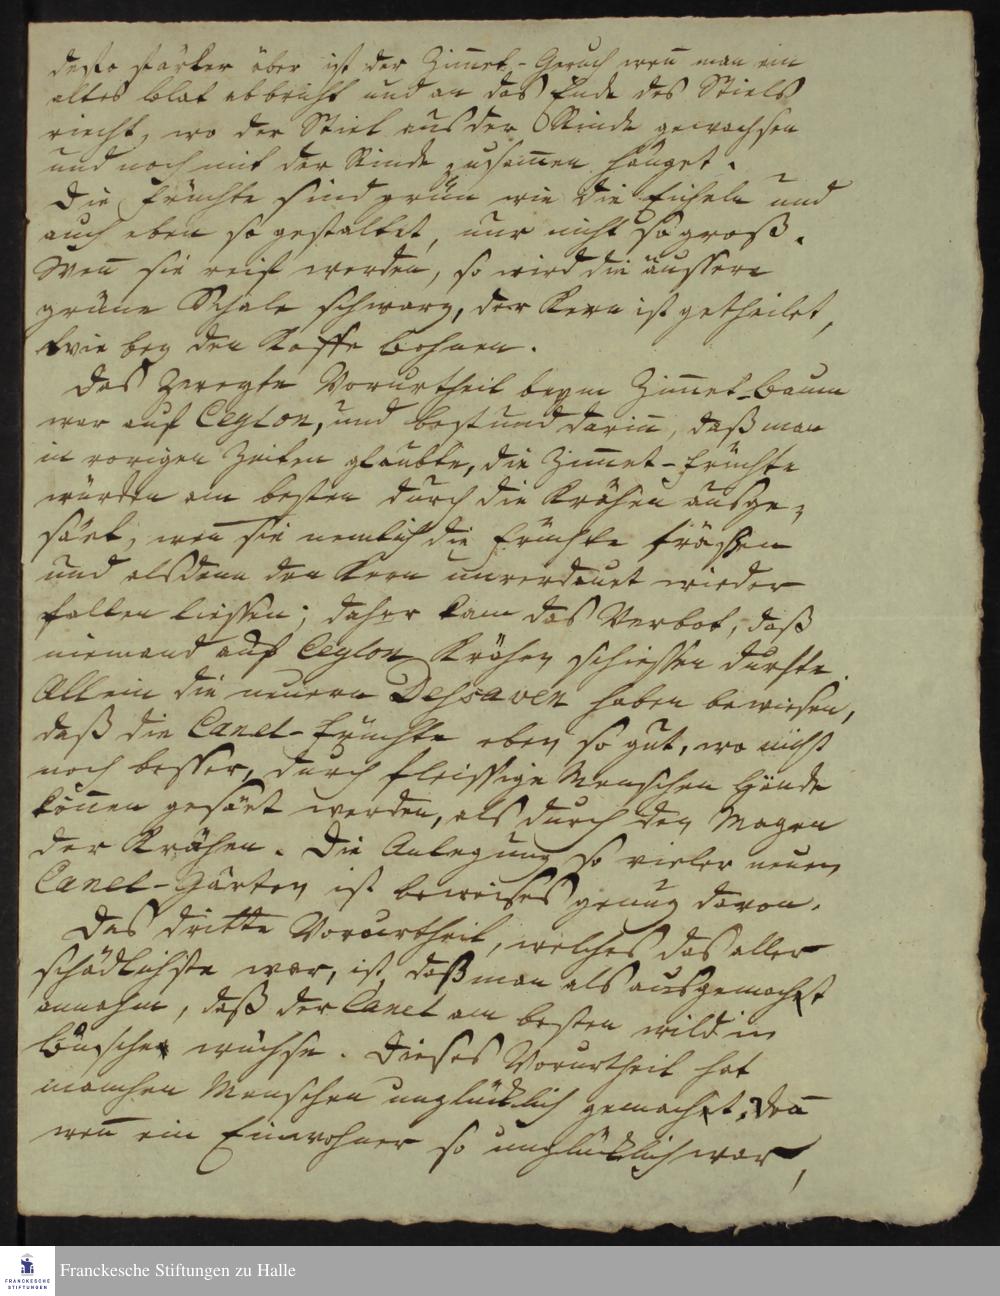 desto stärker aber ist der Zim̅et-Geruch wen̅ man ein
altes Blat abbricht und an das Ende des Stiels
riecht, wo der Stiel aus der Rinde gewachsen
und noch mit der Rinde zusam̅en hänget.
Die Früchte sind grün wie die Eicheln und
auch eben so gestaltet, nur nicht so groß.
Wen̅ sie reif werden, so wird die äussere
grüne Schale schwarz, der Kern ist getheilet,
wie bey den Kaffe bohnen.
Das Zweyte Vorurtheil beym Zim̅et-baum
war auf Ceylon, und bestund darin̅, daß man
in vorigen Zeiten glaubte, die Zim̅et-früchte
würden am besten durch die Krähen ausge-
säet, wen̅ sie nemlich die Früchte frässen
und alsdenn den Kern unverdauet wieder
fallen liessen; daher kam das Verbot, daß
niemand auf Ceylon Krähen schiessen durfte.
Allein die neuern Dehsaven haben bewiesen,
daß die Canel-früchte eben so gut, wo nicht
noch besser, durch fleissige Menschen Hände
kön̅en gesäet werden, als durch den Magen
der Krähen. Die Anlegung so vieler neuen
Canel-Gärten ist beweises genug davon.
Das dritte Vorurtheil, welches das aller
schädlichste war, ist, daß man als ausgemacht
annahm, daß der Canel am besten wild in
Büschen wüchse. Dieses Vorurtheil hat
manchen Menschen unglücklich gemacht, den̅
wen̅ ein Einwohner so unglücklich war,
Franckesche Stiftungen zu Halle
FRANCKESCHE
STIFTUNGEN